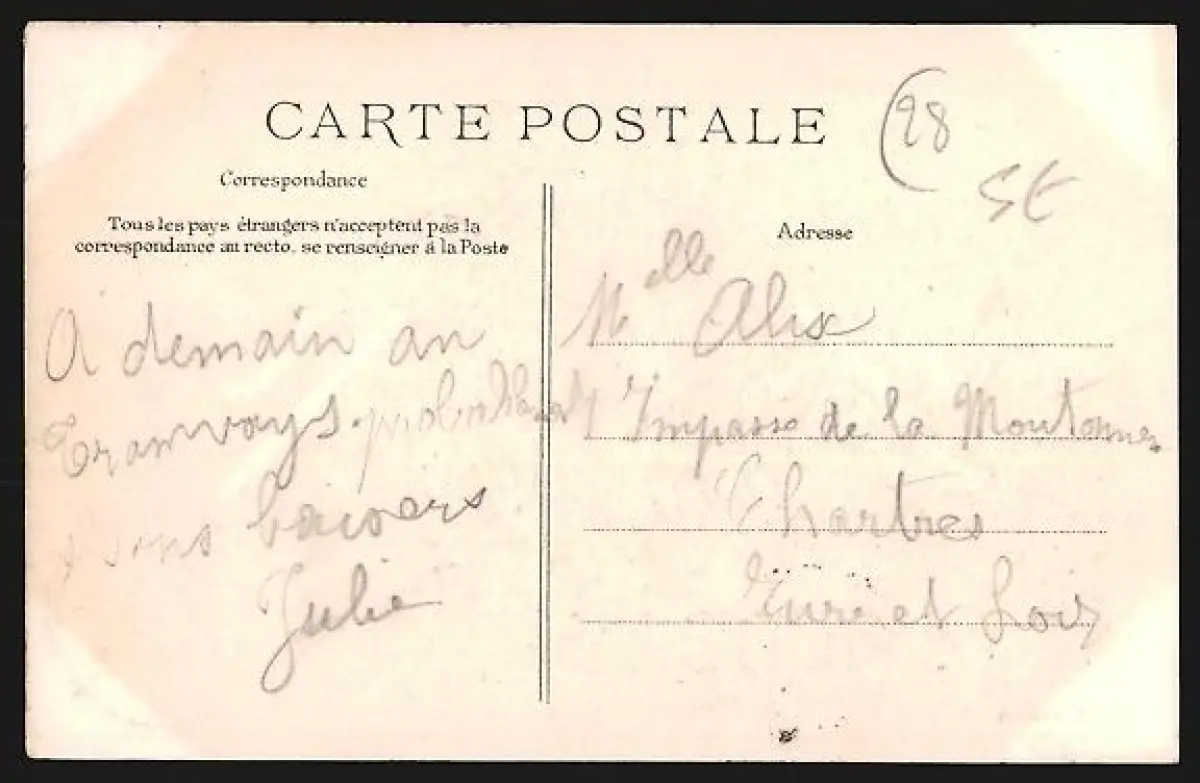 CARTE POSTALE
(28
SE
Correspondance
Tous les pays étrangers n'acceptent pas la
correspondance au recto, se renseigner à la Poste
Adresse
A demain au
Tramways.
baisers
Julie
Melle Alix
Impasse de la
Chartres
Eure et Loir